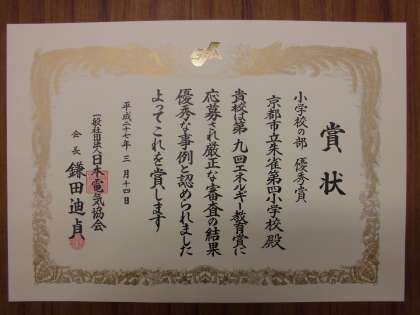 賞状
小学校の部 優秀賞
京都市立朱雀第四小学校 殿
貴校は第九回エネルギー教育賞に
応募され厳正な審査の結果
優秀な事例と認められました
よってこれを賞します
平成二十七年三月十四日
一般社団法人日本電気協会
会長 鎌田迪貞